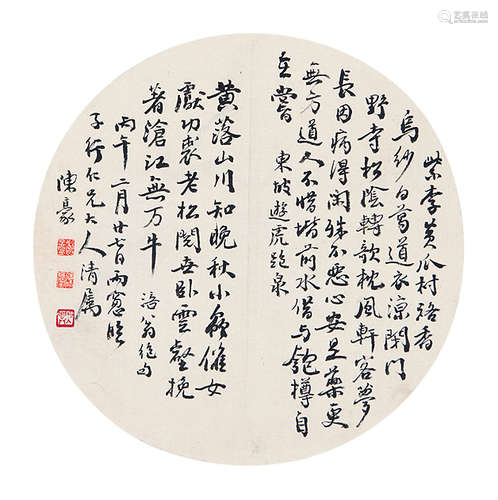 紫李黃瓜村路香
烏紗白葛道衣涼閉門
野寺松陰轉欹枕風軒客夢
長因病得閑殊不惡心安是藥更
無方道人不惜堦前水借與匏樽自
在嘗 東坡遊虎跑泉
黃落山川知晚秋小蟲催女
獻功裘老松閱世臥雲壑挽
著滄江無万牛 涪翁絕句
丙午二月廿 雨窻
子行仁兄大人清屬
陳豪
艺狐在线